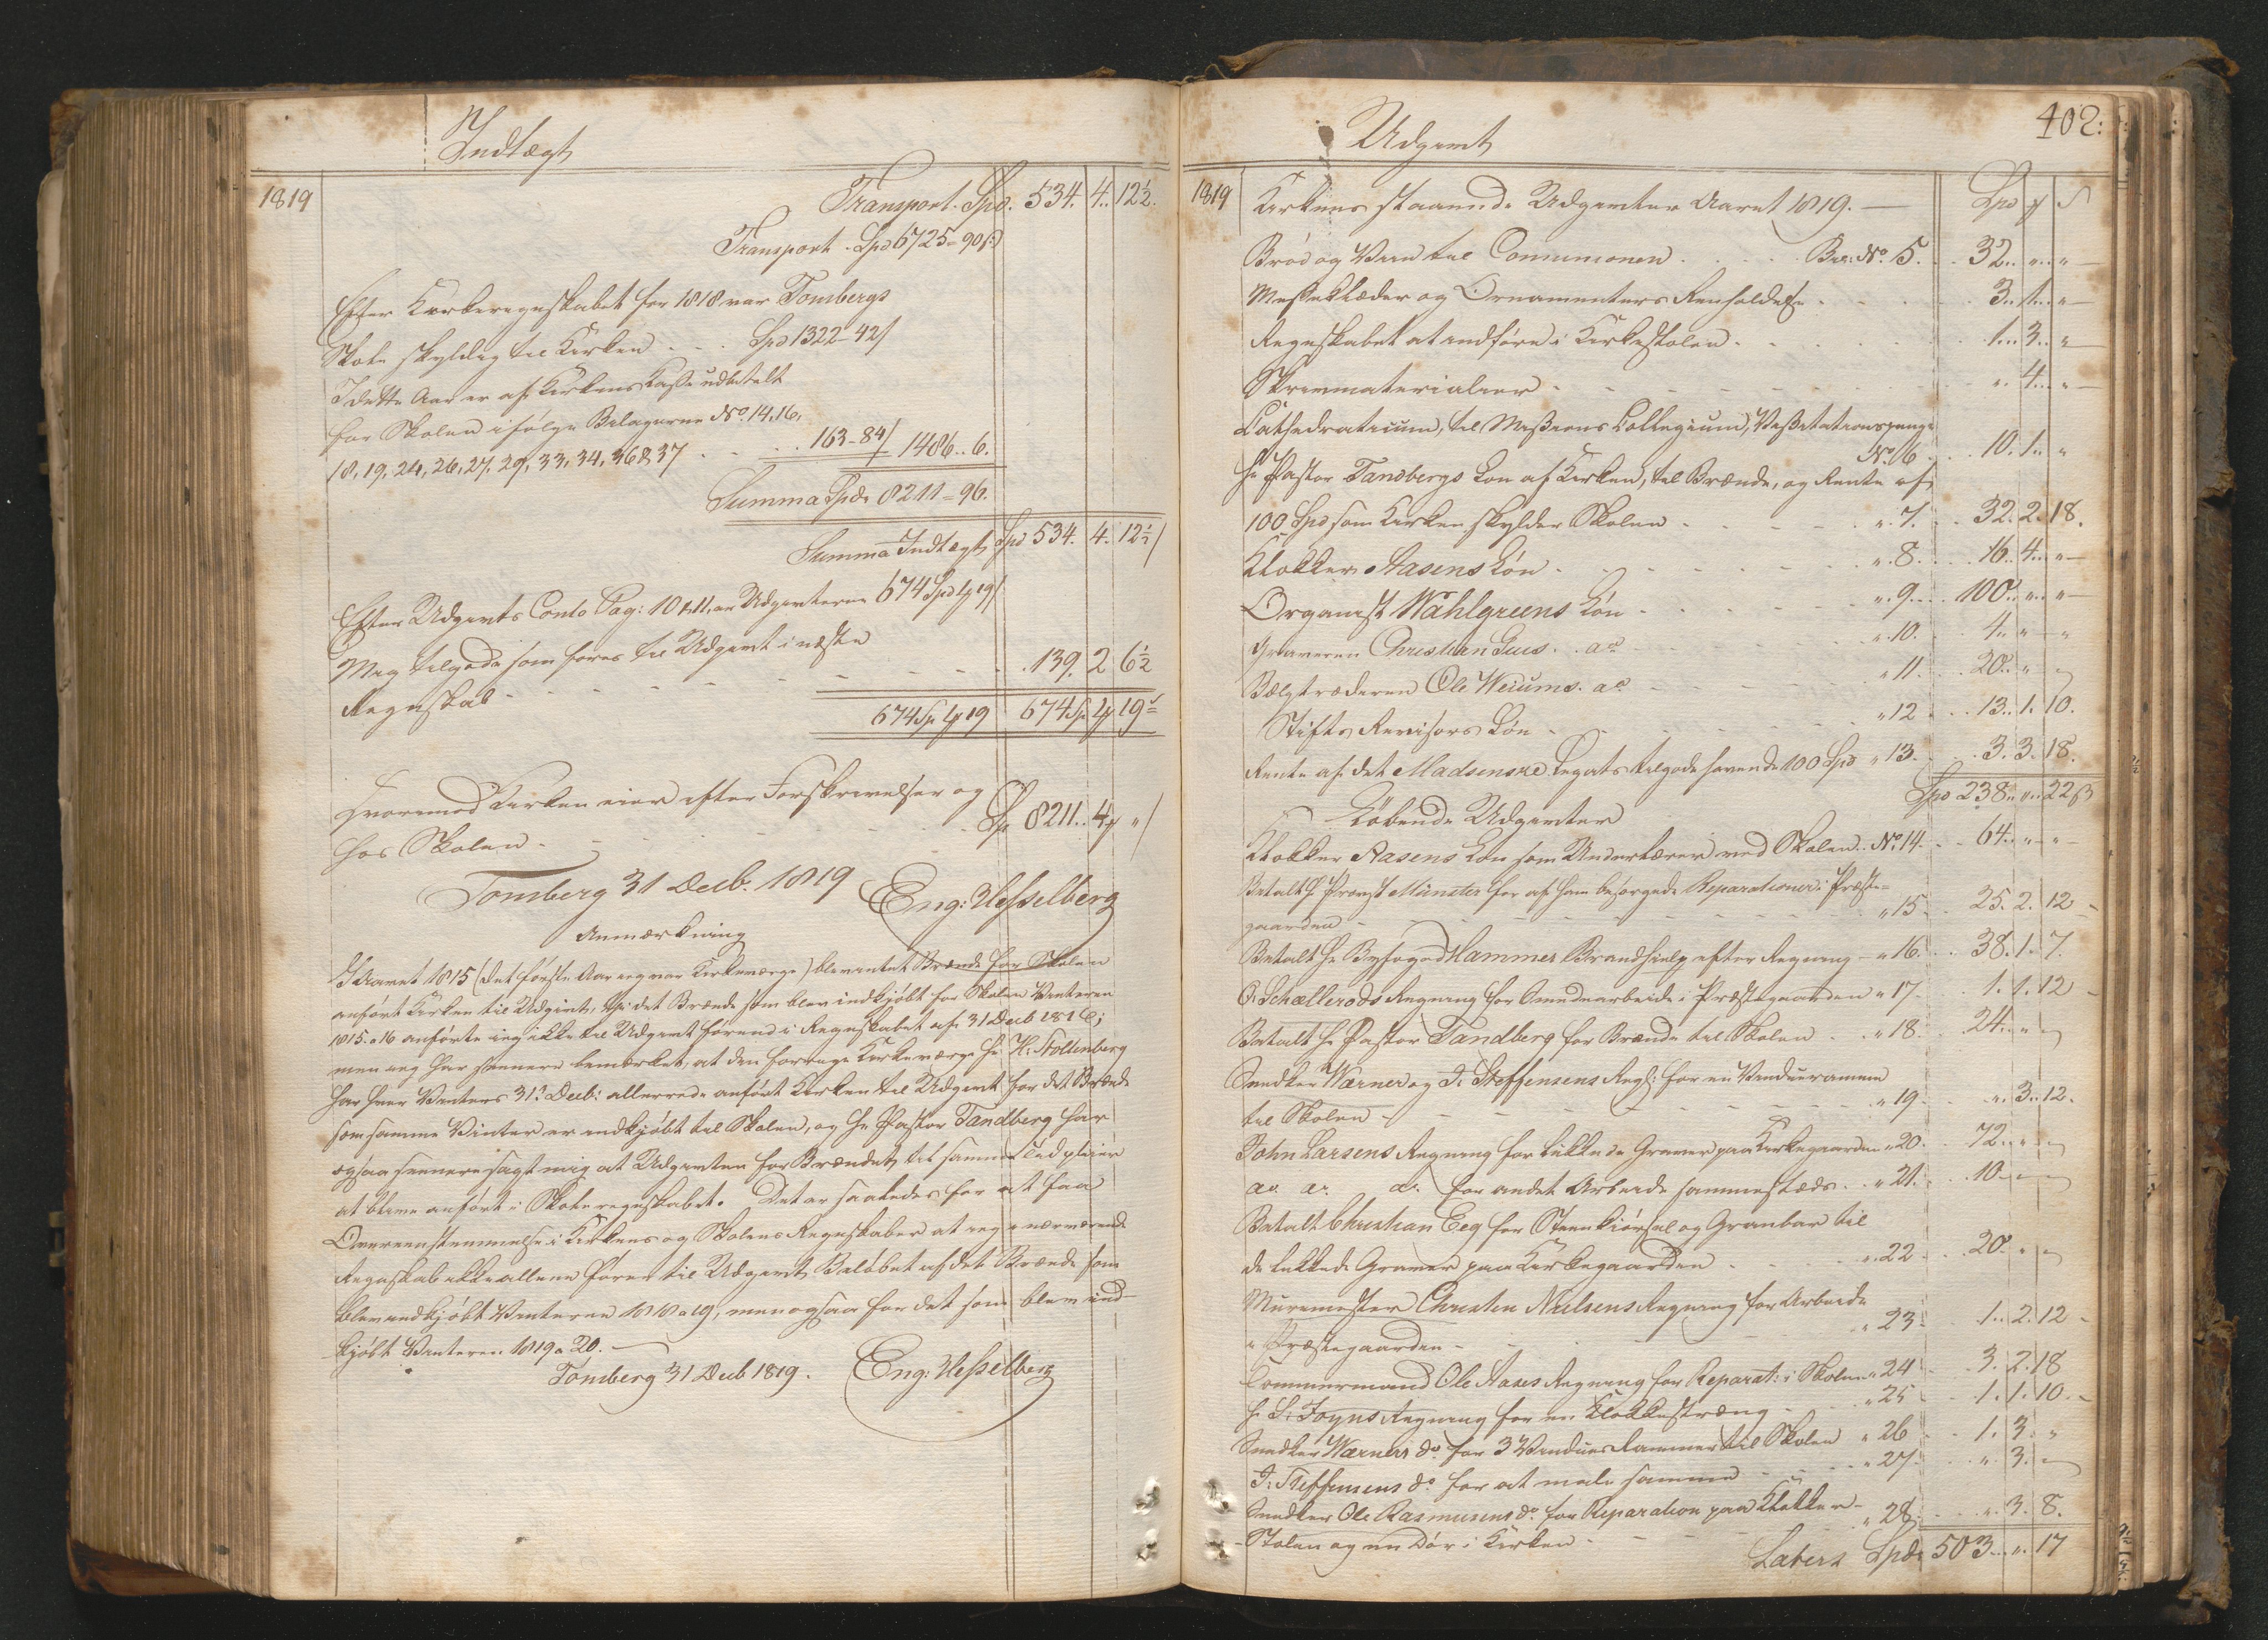 Indtægt
1819
Transport. Spd. 534. 4. 12½.
Transport. Spd 6725 = 90 s
Efter Kirkeregnskabet for 1818 var Tonsbergs
Skole skyldig til Kirken . . . Spd 1322 - 42 s
I dette Aar er af Kirkens Kasse udbetalt
for Skolen ifølge Bilagerne No. 14, 16,
18, 19, 24, 26, 27, 29, 33, 34, 36 & 37 . . . . 163 - 84 s 1486 .. 6.
Summa Spd. 8211 = 96.
Summa Indtægt Spd 534. 4. 12½
Efter Udgivts Conto Pag: 10 & 11, er Udgivterne 674 Spd 1 19
Mig tilgode som føres til Udgivt i næste
Regnskab - - - - - . 139. 2 6½
674 Sp 1 19 674 Sp 1 19
Hvorimod Kirken eier efter Forskrivelser og
hos Skolen - - - - - Sp 8211 .. 4 "
Tonsberg 31 Decb. 1819 Eng: Hesselberg
Anmærkning
I Aaret 1815 (det første Aar ieg var Kirkeværge) blev intet Brænde for Skolen
anført Kirken til Udgivt, thi det Brænde som blev indkjøbt for Skolen Vinteren
1815 a 16 anførte ieg ikke til Udgivt førend i Regnskabet af 31 Decb 1816;
men ieg har senere bemærket, at den forrige Kirkeværge Hr. H: Stoltenberg
har hver Vinters 31 Decb: allerede anført Kirken til Udgivt for det Brænde
som samme Vinter er indkjøbt til Skolen, og Hr Pastor Tandberg har
ogsaa senere sagt mig at Udgivten for Brændet til samme Tid pleier
at blive anført i Skoleregnskabet. Det er saaledes for at faa
Overeenstemmelse i Kirkens og Skolens Regnskaber at ieg i nærværende
Regnskab ikke allene fører til Udgivt Beløbet af det Brænde som
blev indkjøbt Vinteren 1818 a 19, men ogsaa for det som blev ind-
kjøbt Vinteren 1819 a 20.
Tonsberg 31 Decb 1819. Eng: Hesselberg
Udgivt
402:
1819 Kirkens staaende Udgivter Aaret 1819. — Spd
Brød og Viin til Comunionen . . . . Bil: No. 5. . 32 .. " .. "
Messeklæder og Ornamenters Renholdelse . . . 3 .. 1 .. "
Regnskabet at indføre i Kirkestolen . . . . 1 .. 3 .. "
Skrivmaterialier . . . " . 4 .. "
Cathedraticum, til Missions Collegium, Visitationspenge
No. 6 . . 10. 1 .. "
Hr Pastor Tandbergs Løn af Kirken, til Brænde, og Rente af
100 Spd som Kirken skylder Skolen . . . " . 7. . 32. 2. 18.
Klokker Aasens Løn . . . " . 8. . . 16. 4 .. "
Organist Wahlgreens Løn . . . " . 9. . . 100 .. " .. "
Graveren Christian . . do . . " . 10. . . 4 .. " "
Bælgtræderen Ole . do . . " 11 . . 20 .. "
Stifts Revisors Løn . . . " 12 . . 13. 1. 10.
Rente af det Madsenske Legats tilgodehavende 100 Spd " 13. . . 3. 3. 18.
Spd 238 .. " .. 22 s
Løbende Udgivter
Klokker Aasens Løn som Underlærer ved Skolen. No. 14. . 64 .. " "
Betalt Hr Provst Münster for af ham besørgede Reparationer i Præste-
gaarden . . . " 15 . 25. 2. 12
Betalt Hr Byfoged Hammer Brandhielp efter Regning - " 16. . 38. 1. 7.
O. Schællerøds Regning for Smedearbeide i Præstegaarden " 17. . 1. 1. 12
Betalt Hr Pastor Tandberg for Brænde til Skolen . . " 18. . 24 .. "
Snedker Wærner og I. Steffensens Regl: for en Vinduesramme
til Skolen . . . " 19 . " . 3. 12.
John Larsens Regning for lukkede Graver paa Kirkegaarden " 20. . 72. "
do do do for andet Arbeide sammesteds . . " 21. . 10.
Betalt Christian Eeg for Steenkiørsel og Granbar til
de lukkede Graver paa Kirkegaarden . . . " 22 . 20. "
Muremester Christen Nielsens Regning for Arbeide
i Præstegaarden . . . " 23 . 1 .. 2. 12
Tommermand Ole Aases Regning for Reparat: i Skolen " 24 . 3. 2. 18
Hr S. Foyns Regning for en Klokkestræng . . " 25 . 1. 1. 10.
Snedker Wærners do for 3 Vindues Rammer til Skolen " 26 . 1. 3. "
I: Steffensens do for at male samme . . . " 27. . " 3.
Snedker Ole Rasmusens do for Reparation paa Klokker-
Stolen og en Dør i Kirken . . " 28 . " 3. 8.
Latus Spd. 503 .. " . 17